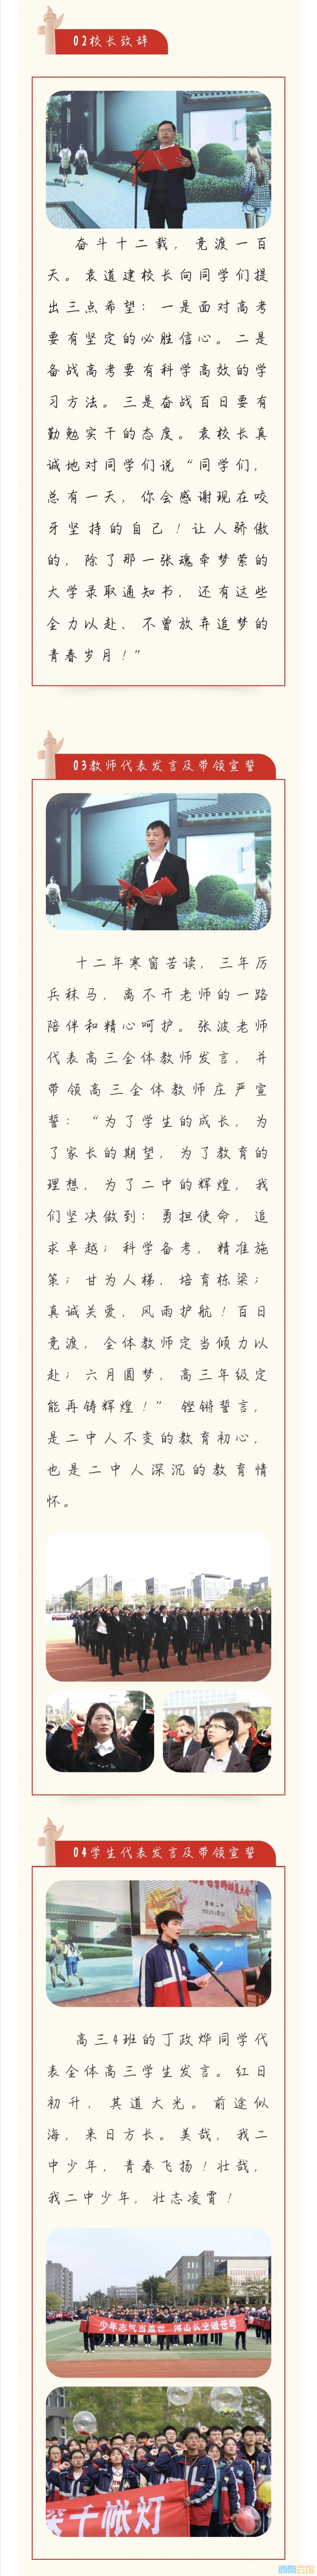 02校长致辞
奋斗十二载，竞渡一百
天。袁道建校长向同学们提
出三点希望：一是面对高考
要有坚定的必胜信心。二是
备战高考要有科学高效的学
习方法。三是奋战百日要有
勤勉实干的态度。袁校长真
诚地对同学们说“同学们，
总有一天，你会感谢现在咬
牙坚持的自己！让人骄傲
的，除了那一张魂牵梦萦的
大学录取通知书，还有这些
全力以赴、不曾放弃追梦的
青春岁月！”
03教师代表发言及带领宣誓
十二年寒窗苦读，三年厉
兵秣马，离不开老师的一路
陪伴和精心呵护。张波老师
代表高三全体教师发言，并
带领高三全体教师庄严宣
誓：“为了学生的成长，为
了家长的期望，为了教育的
理想，为了二中的辉煌，我
们坚决做到：勇担使命，追
求卓越；科学备考，精准施
策；甘为人梯，培育栋梁；
真诚关爱，风雨护航！百日
竞渡，全体教师定当倾力以
赴；六月圆梦，高三年级定
能再铸辉煌！”铿锵誓言，
是二中人不变的教育初心，
也是二中人深沉的教育情
怀。
04学生代表发言及带领宣誓
高三4班的丁政烨同学代
表全体高三学生发言。红日
初升，其道大光。前途似
海，来日方长。美哉，我二
中少年，青春飞扬！壮哉，
我二中少年，壮志凌霄！
少年志气当盖世 搏击长空破苍穹
千帐灯